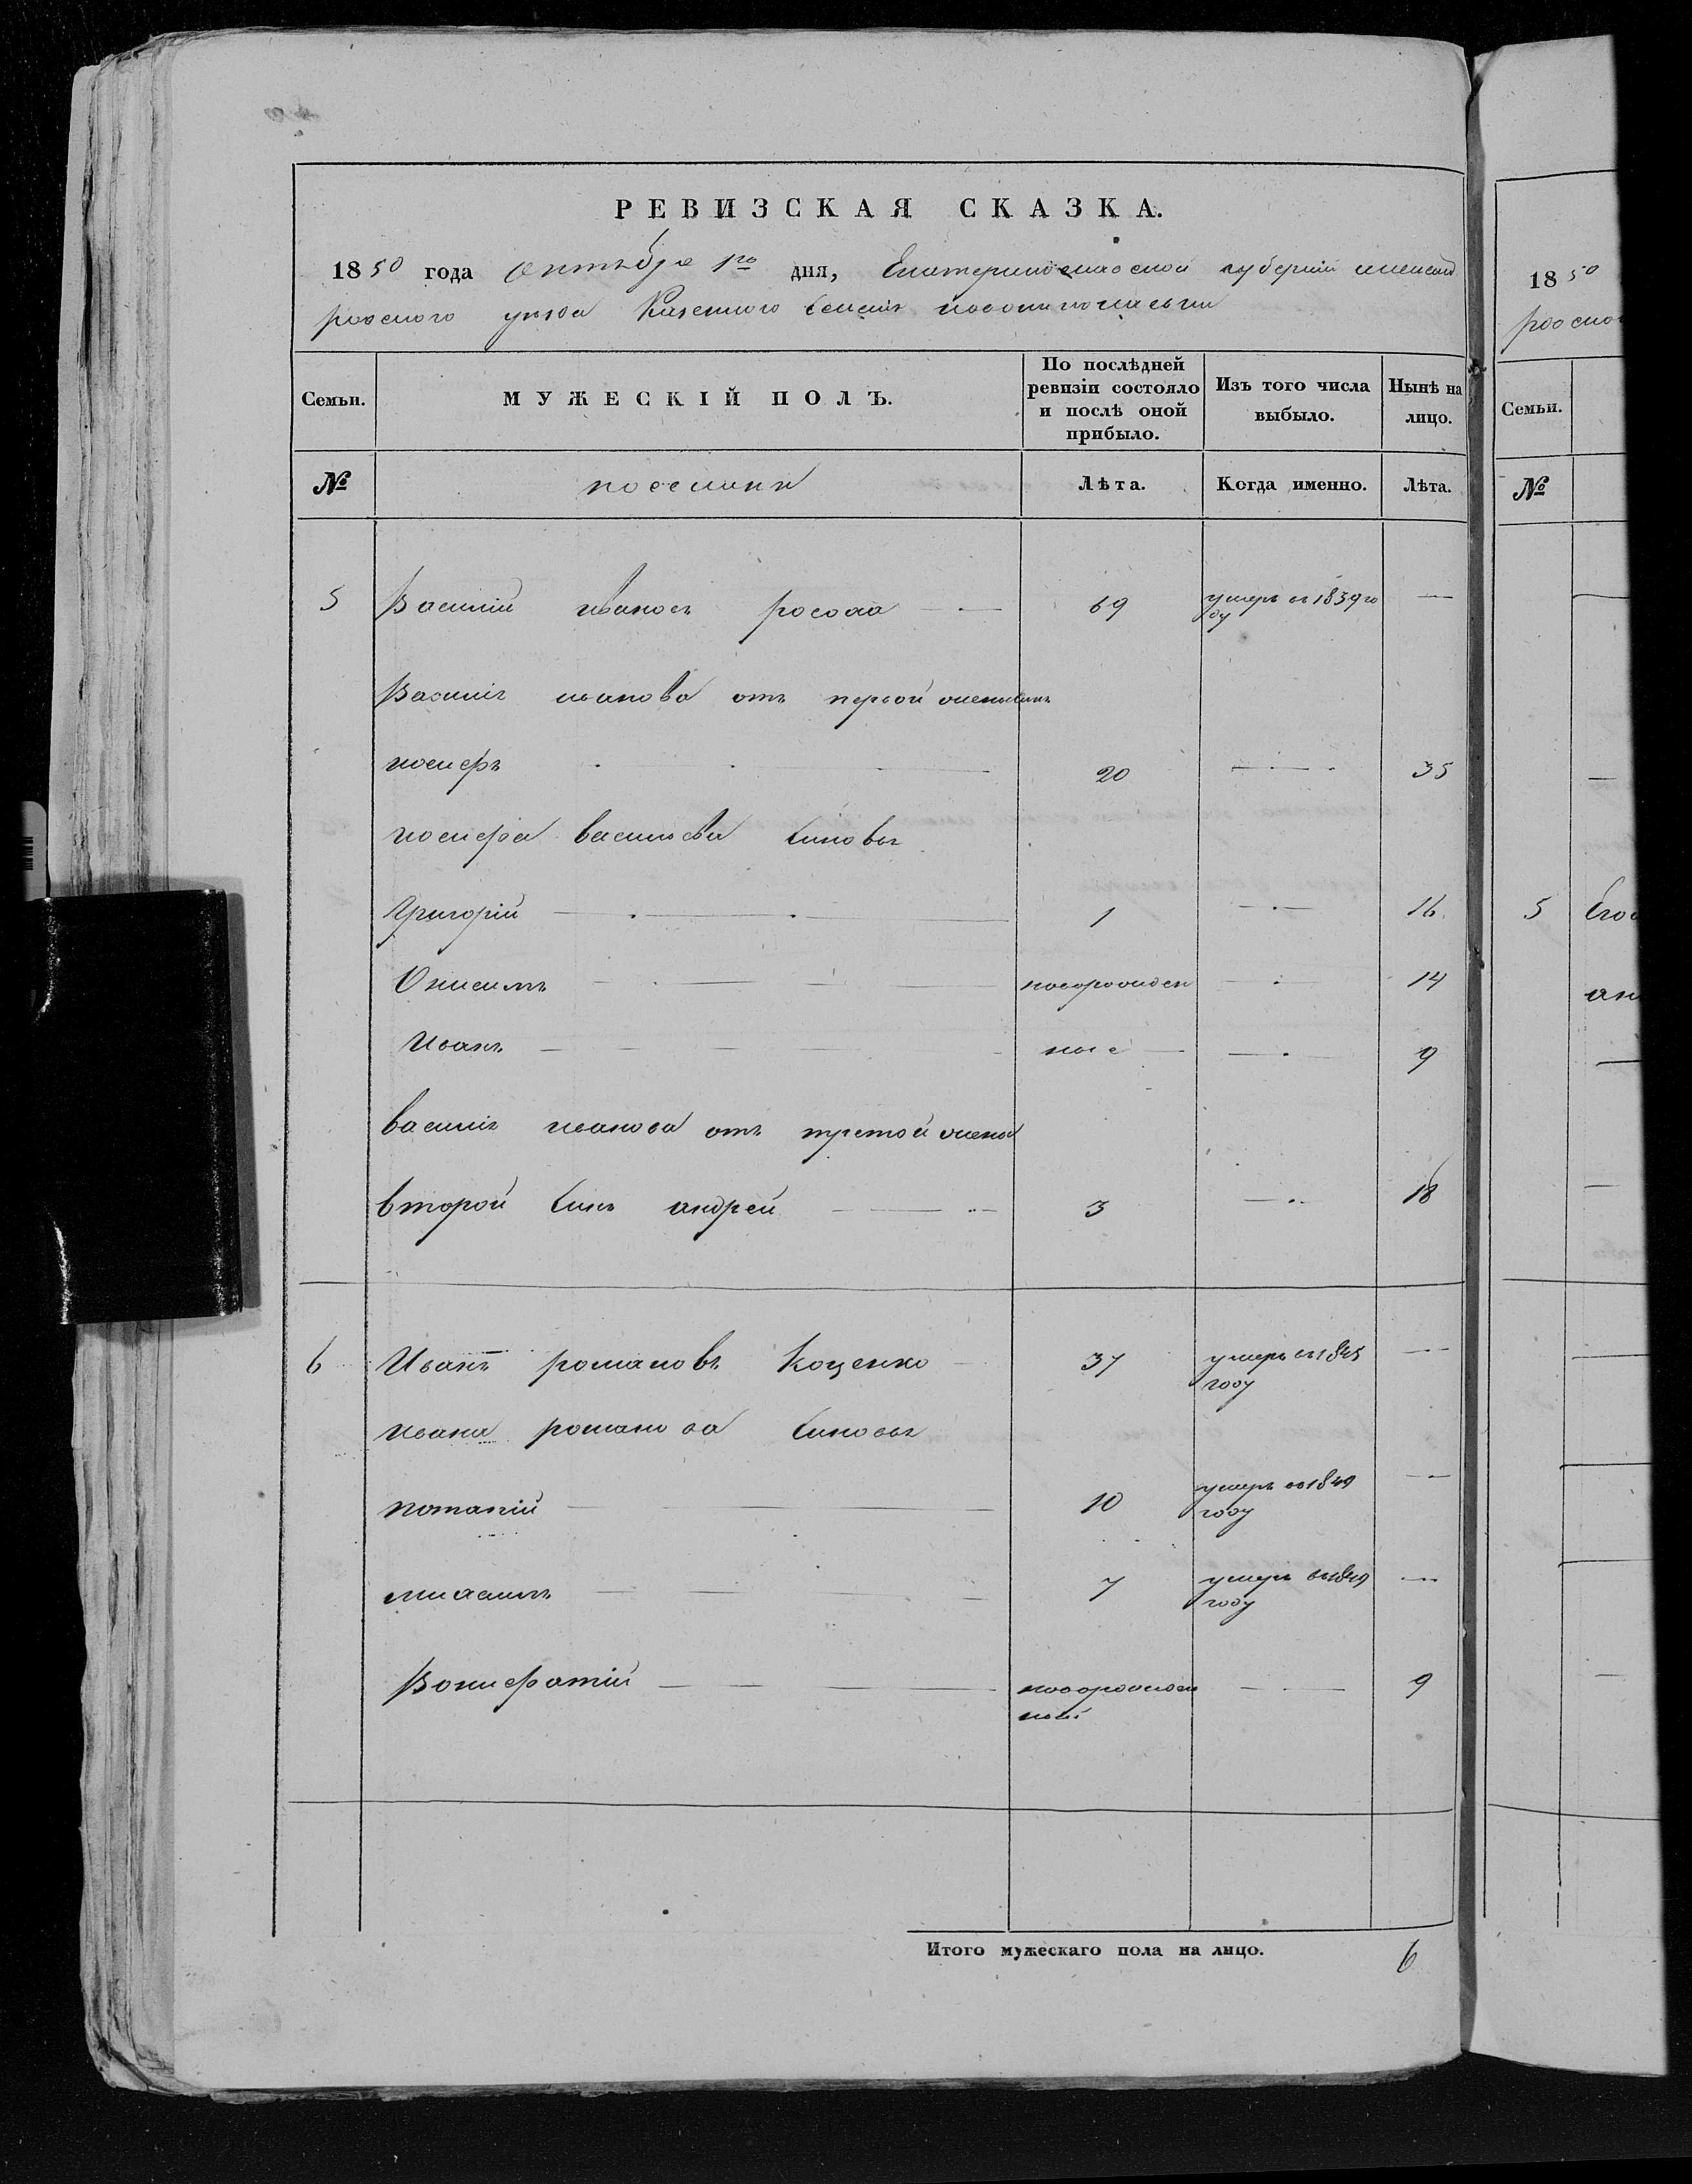 РЕВИЗСКАЯ СКАЗКА.
1850 года Октября 1го дня, Екатеринославской губернии
ровского уезда Казенного селения
Семьи. МУЖЕСКІЙ ПОЛЪ. По послѣдней ревизіи состояло и послѣ оной прибыло. Изъ того числа выбыло. Нынѣ на лицо.
№ Лѣта. Когда именно. Лѣта.
5 Василий Иванов 69 умеръ в 1839 го
ду
Василия иванова отъ первой жены синъ
иосифъ 20 35
иосифа васильева синовья
Григорий 1 16
Онисимъ новорожден 14
Иванъ ные 9
василия иванова отъ третой жены
второй синъ андрей 3 18
6 Иванъ романовъ Коценко 37 умеръ в 1845
году
ивана романова синовья
потапий 10 умеръ в 1849
году
михаилъ 7 умеръ в 1849
году
Вонифатий новорожден 9
ный
Итого мужескаго пола на лицо. 6
1850
Семьи.
№
5